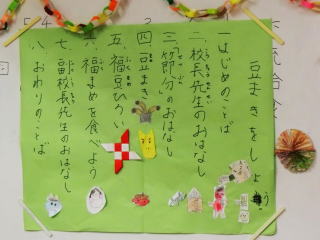 豆まきをしよう
一 はじめのことば
二 校長先生のおはなし
三 節分のおはなし
四 豆まき
五 福豆ひろい
六 福まめを食べよう
七 副校長先生のおはなし
八 おわりのことば